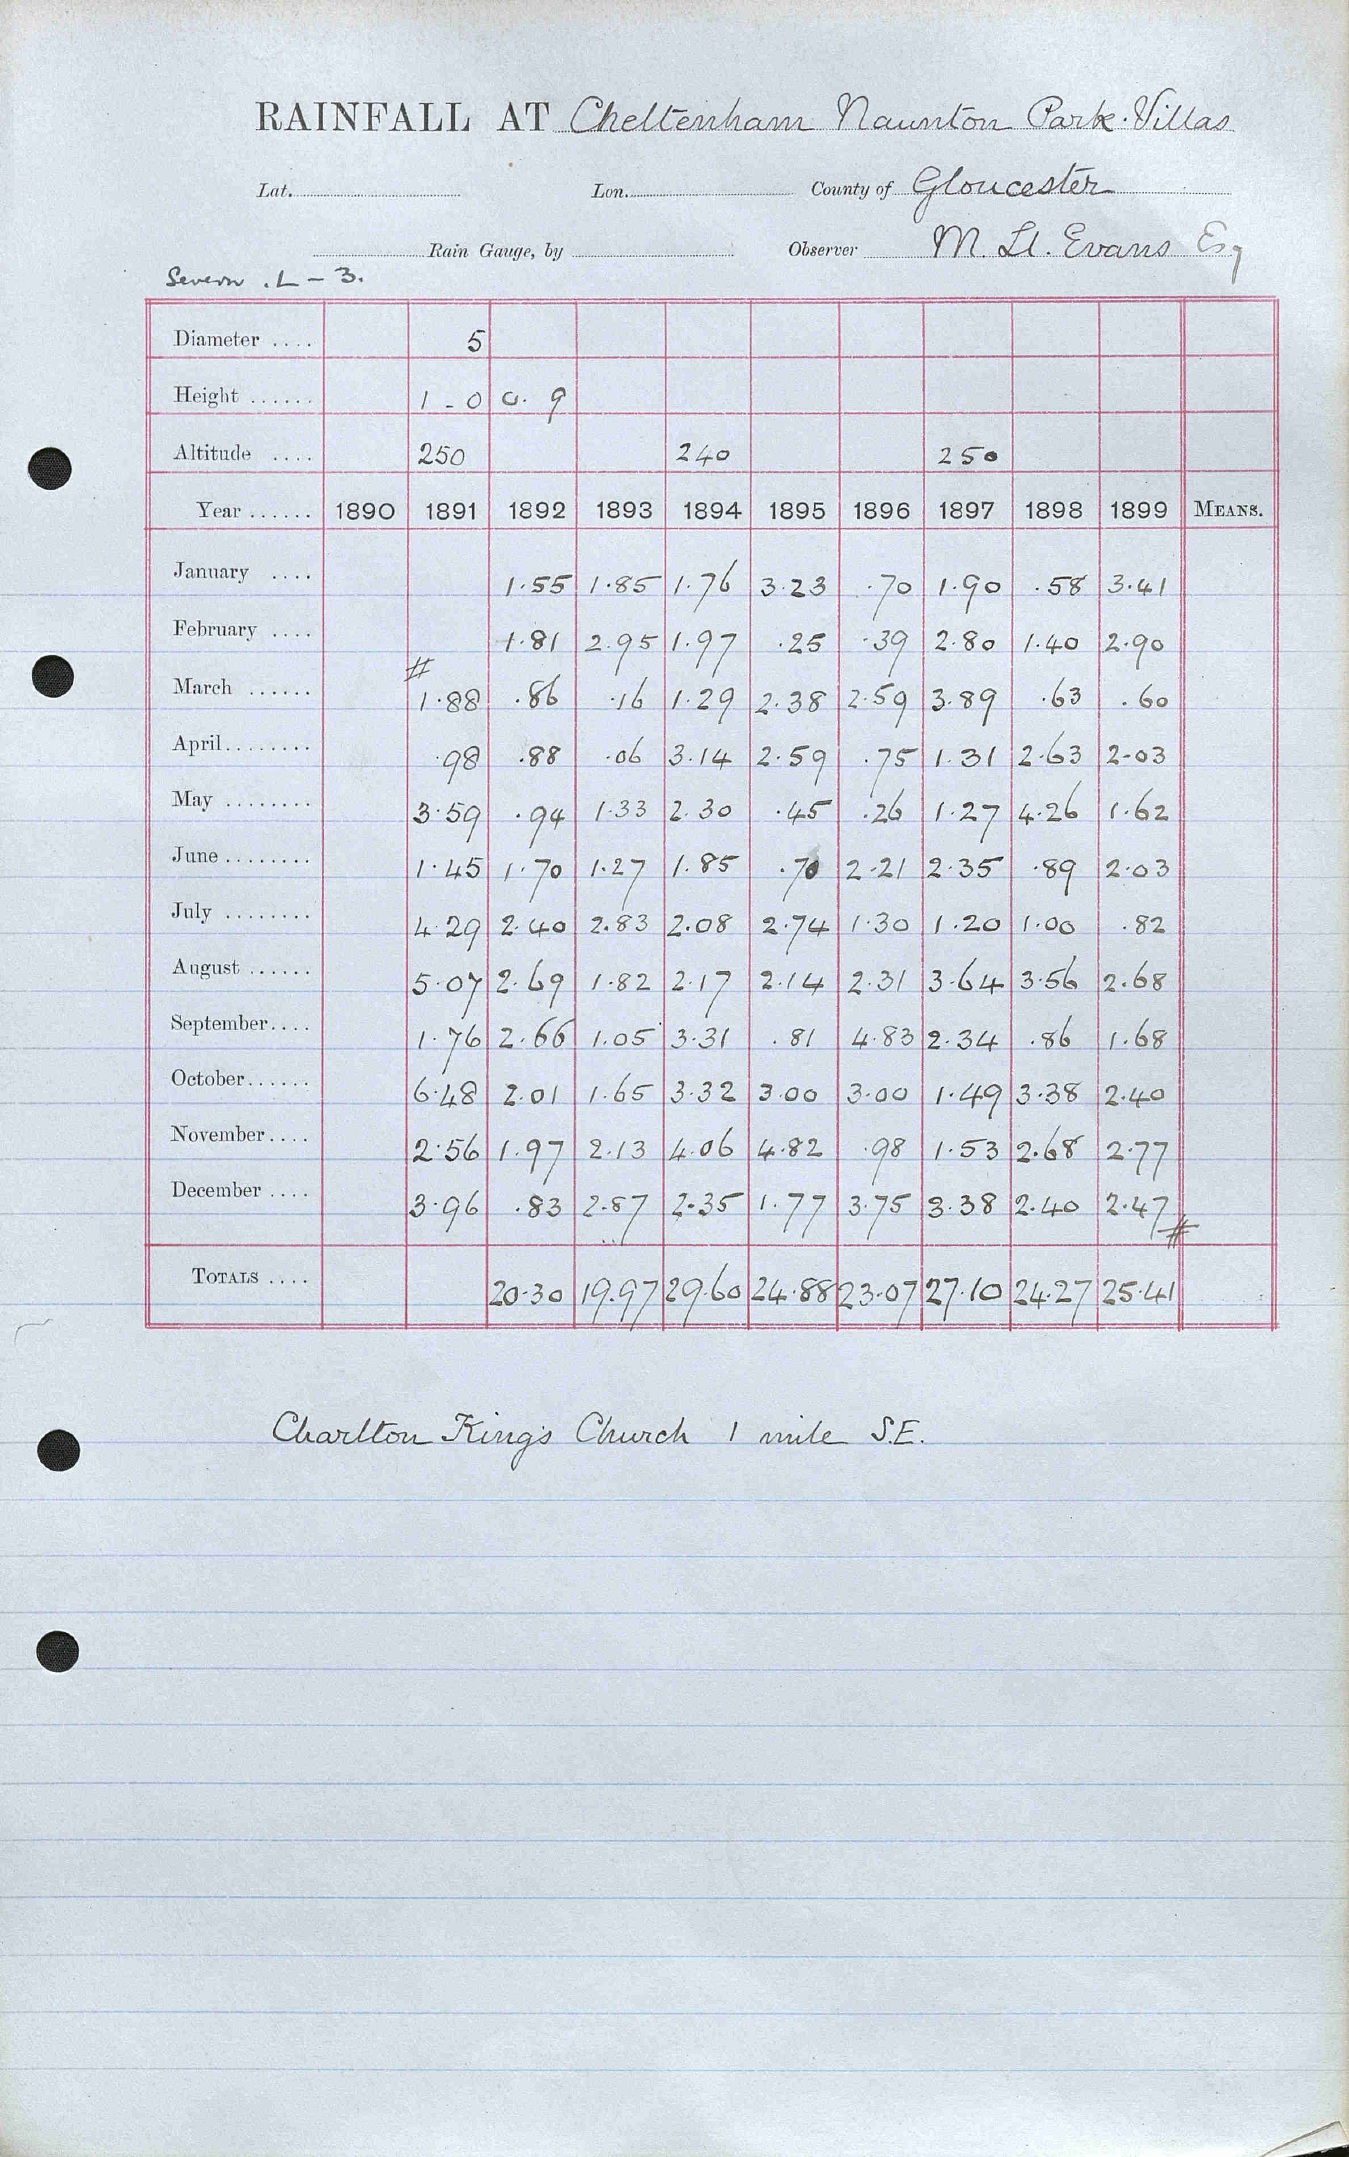 RAINFALL AT Cheltenham Naunton Park. Villas
Lat. Lon. County of Gloucester
Rain Gauge, by Observer M. Ll. Evans Esq
Severn . L - 3.
Diameter .... 5
Height ...... 1 - 0 0. 9
Altitude .... 250 240 250
Year ...... 1890 1891 1892 1893 1894 1895 1896 1897 1898 1899 MEANS.
January .... 1.55 1.85 1.76 3.23 .70 1.90 .58 3.41
February .... 1.81 2.95 1.97 .25 .39 2.80 1.40 2.90
#
March ...... 1.88 .86 .16 1.29 2.38 2.59 3.89 .63 .60
April........ .98 .88 .06 3.14 2.59 .75 1.31 2.63 2.03
May ........ 3.59 .94 1.33 2.30 .45 .26 1.27 4.26 1.62
June ........ 1.45 1.70 1.27 1.85 .70 2.21 2.35 .89 2.03
July ........ 4.29 2.40 2.83 2.08 2.74 1.30 1.20 1.00 .82
August ...... 5.07 2.69 1.82 2.17 2.14 2.31 3.64 3.56 2.68
September.... 1.76 2.66 1.05 3.31 .81 4.83 2.34 .86 1.68
October...... 6.48 2.01 1.65 3.32 3.00 3.00 1.49 3.38 2.40
November.... 2.56 1.97 2.13 4.06 4.82 .98 1.53 2.68 2.77
December .... 3.96 .83 2.87 2.35 1.77 3.75 3.38 2.40 2.47
#
TOTALS .... 20.30 19.97 29.60 24.88 23.07 27.10 24.27 25.41
Charlton King's Church 1 mile S.E.